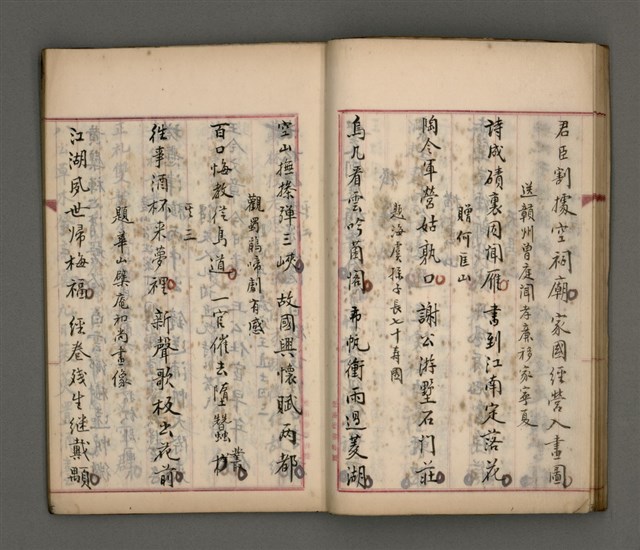 君臣割據空祠廟 家國經營入畫圖
送贛州曾庭聞孝廉移家寧夏
詩成磧裏因聞雁 書到江南定落花
贈何巨山
陶令軍營姑孰口 謝公游墅石門莊
題海虞孫子長七十壽圖
烏几看雲吟菌閣 布帆衝雨過菱湖
空山撫操彈三峽 故國興懷賦兩都
觀蜀鵑啼劇有感
百口悔教從鳥道 一官催去墮蠶叢
其三
往事酒杯來夢裡 新聲歌板出花前
題華山檗庵和尚畫像
江湖夙世歸梅福 經卷殘生繼戴顒